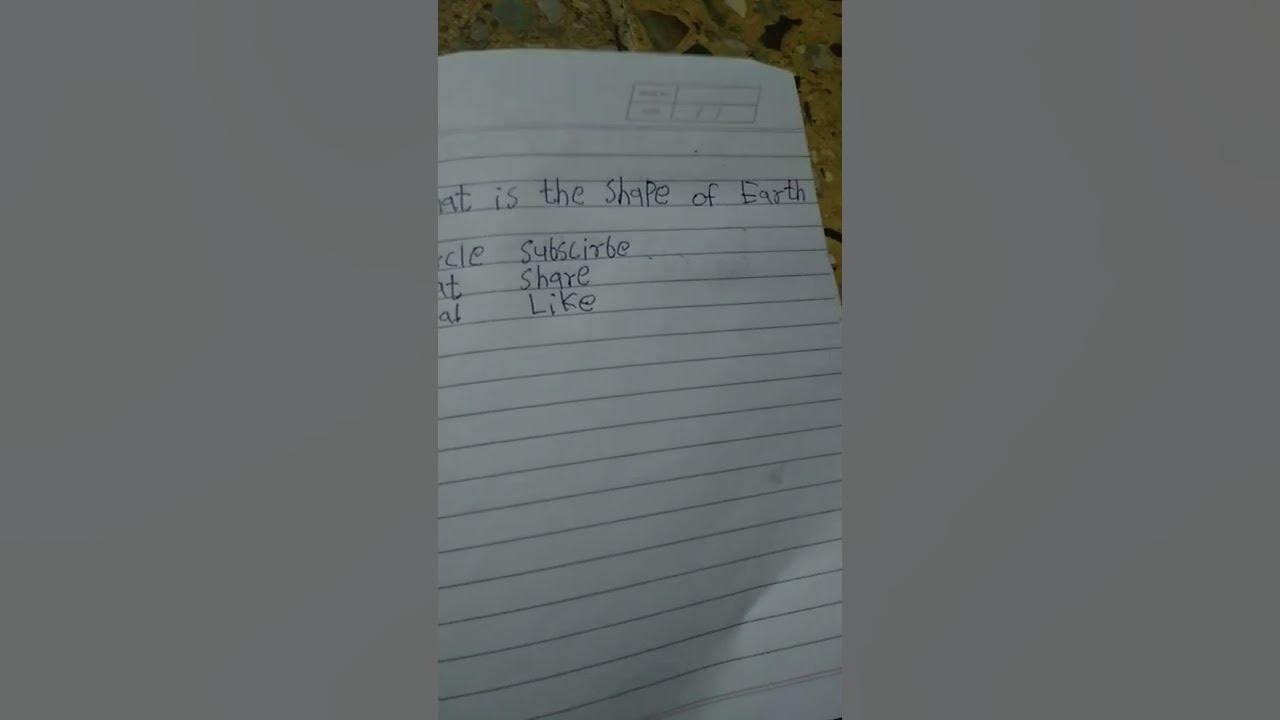 at is the shape of Earth
cle subscirbe
at share
al Like